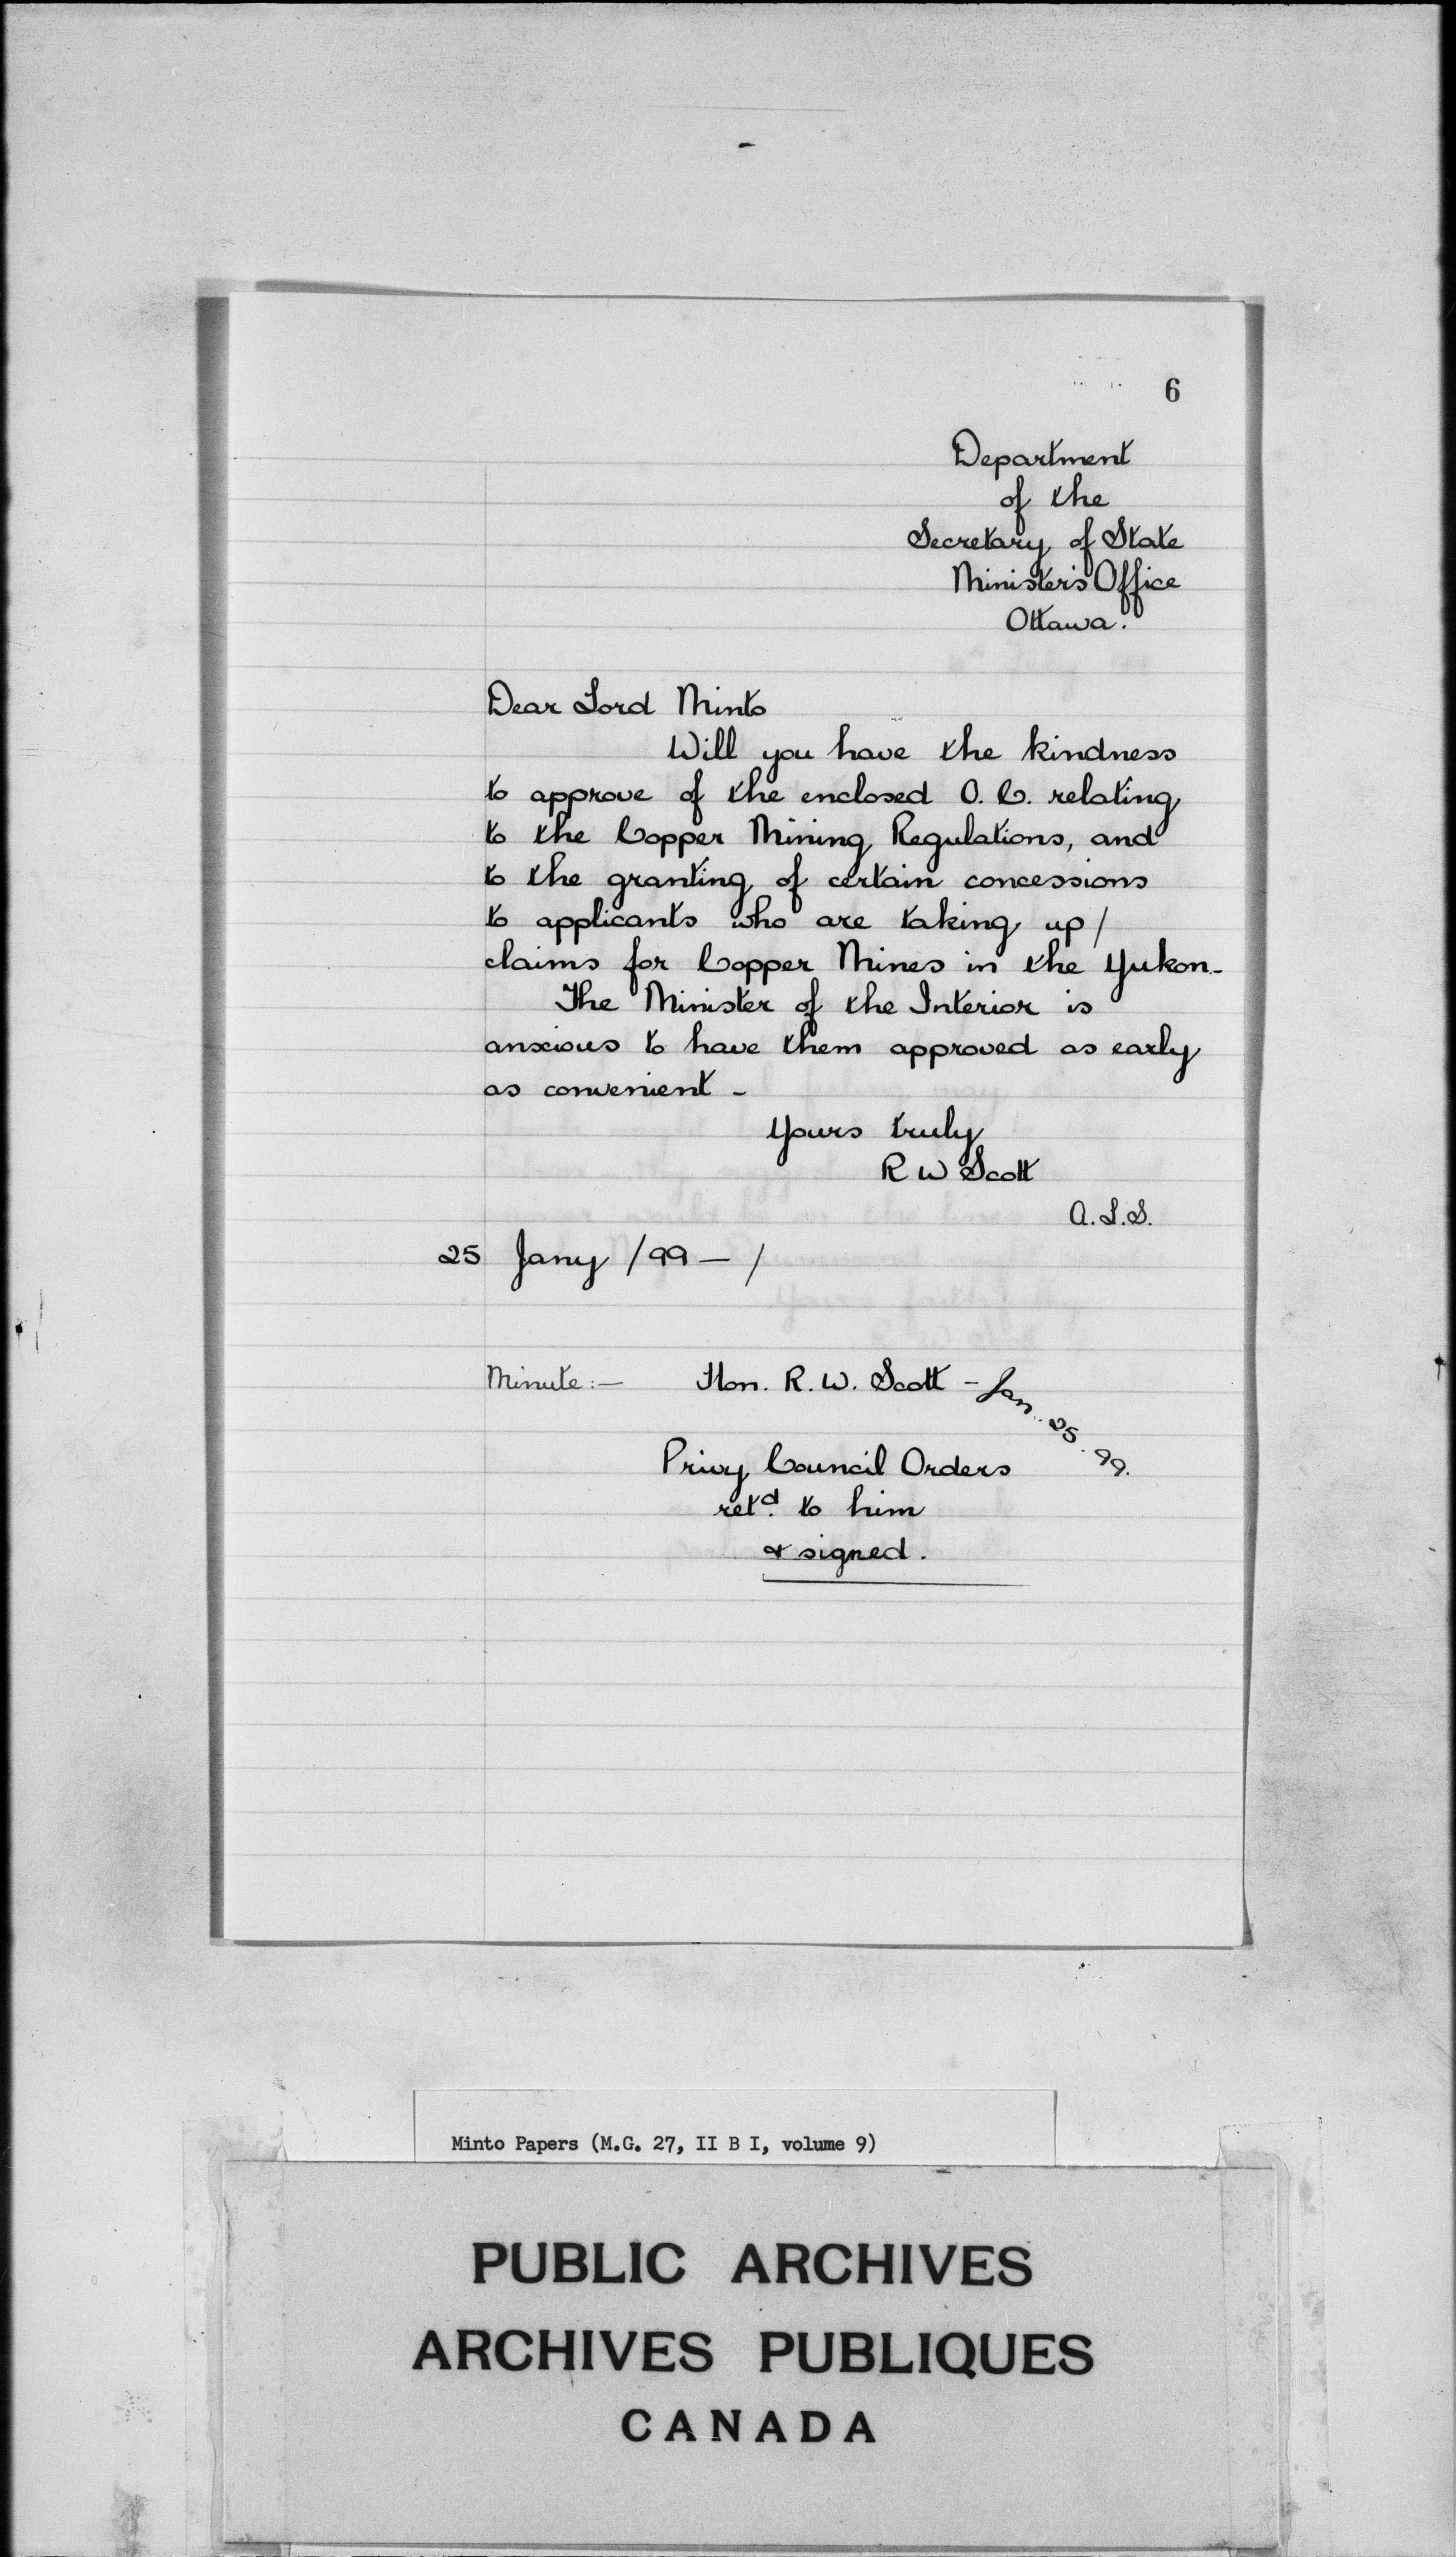 6
Department
of the
Secretary of State
Minister's Office
Ottawa.
Dear Lord Minto
Will you have the kindness
to approve of the enclosed O. C. relating
to the Copper Mining Regulations, and
to the granting of certain concessions
to applicants who are taking up /
claims for Copper Mines in the Yukon -
The Minister of the Interior is
anxious to have them approved as early
as convenient -
Yours truly
R W Scott
A. L. S.
25 Jany / 99 — /
Minute :— Hon. R. W. Scott - Jan. 25. 99.
Privy Council Orders
retd. to him
& signed.
Minto Papers (M.G. 27, II B I, volume 9)
PUBLIC ARCHIVES
ARCHIVES PUBLIQUES
CANADA